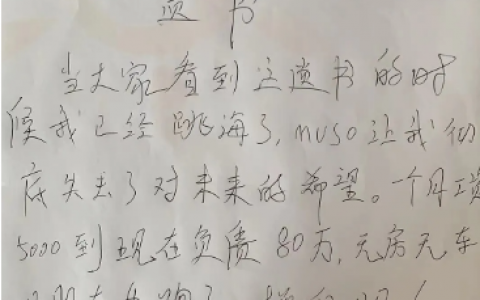 遗书
当大家看到这遗书的时
候我已经跳海了,muso让我彻
底失去了对未来的希望。一个月
5000到现在负债80万,无房无车